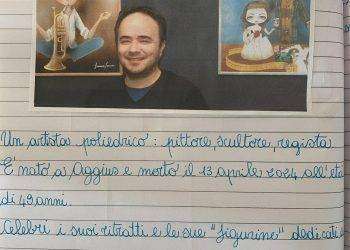 Un artista poliedrico: pittore, scultore, regista
E' nato a Aggius e morto il 13 aprile 2024 all'età
di 49 anni.
Celebri i suoi ritratti e le sue "figurine" dedicati